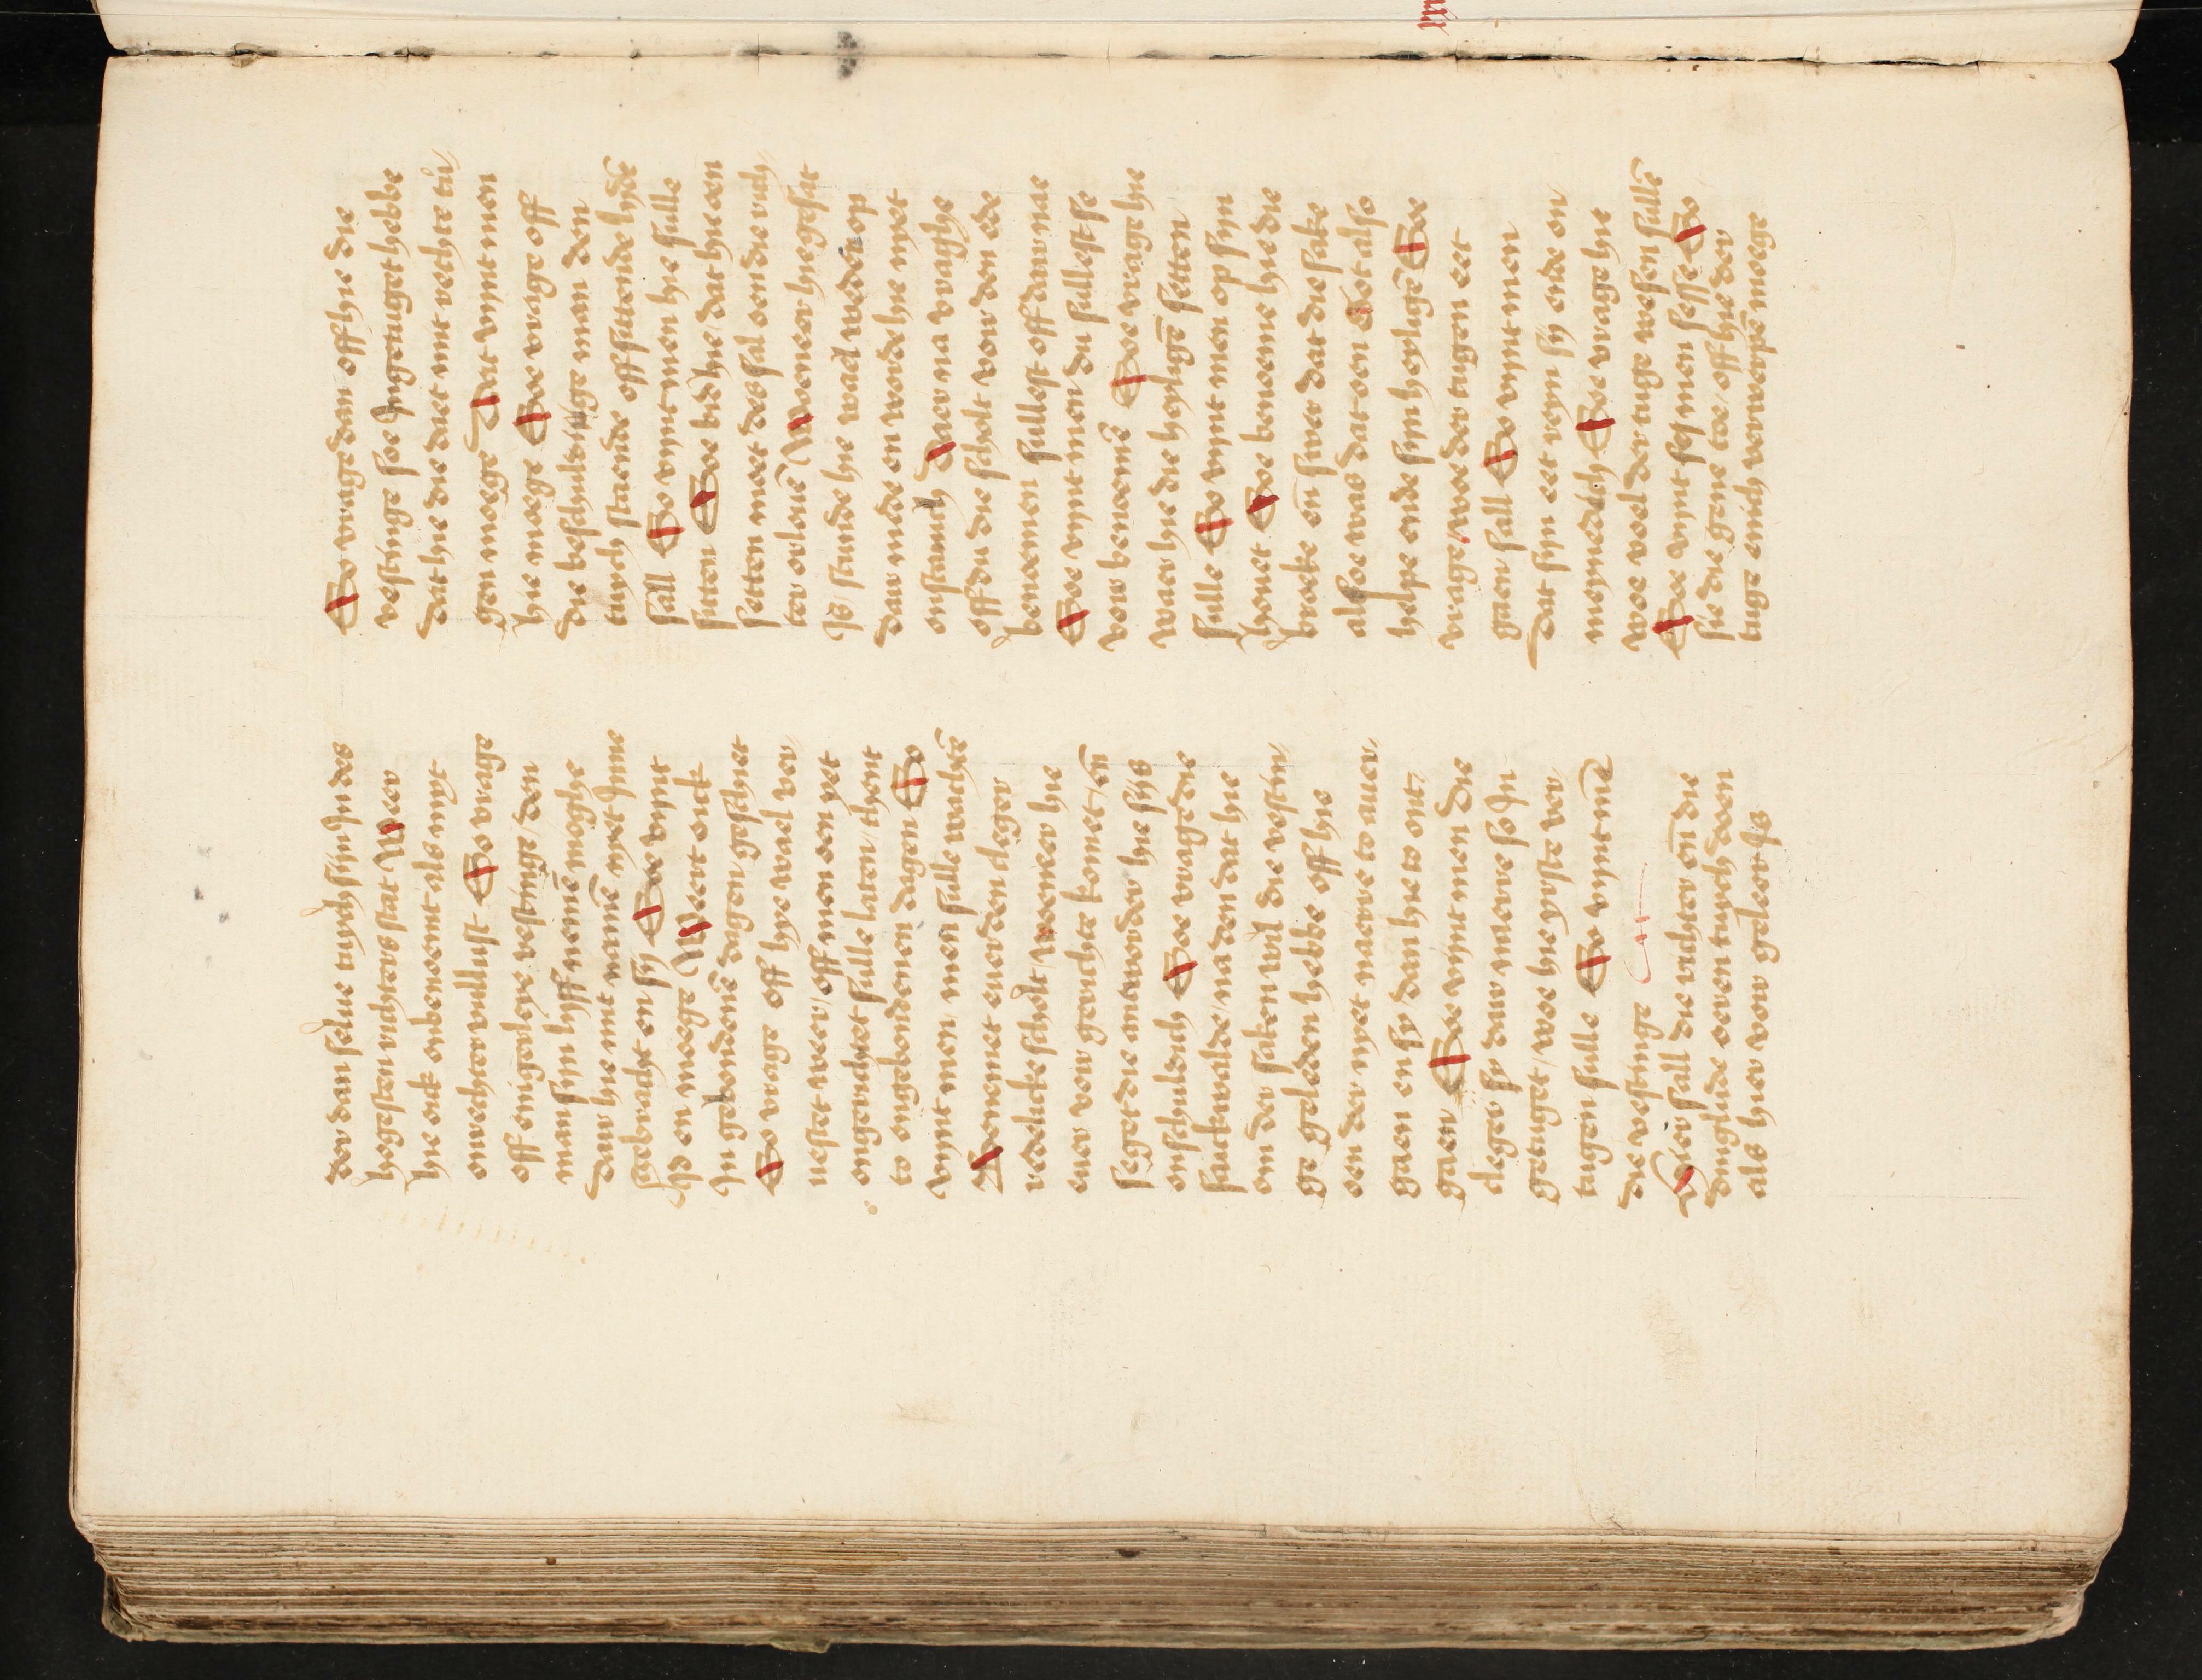 der dan selue tuych sijn In des
hogesten richters stat Weer
hie ock onbenoemt als nyt
onrechter vullust So vrage
off enigerleye vestinge den
man sijn lyff nemē moghe
daer hie mit namē nyet Inne
gebracht en sy Soe vijnt
Id en moege Weert oick
In gebondenē dagen geschiet
So vrage off hye wael ver„
uestet weer off men oen yet
ongerichtet sulle laten thent
to ongebondenen dagen So
vijnt men men sulle wachtē
Woemet euer den cleger
redelicke scholt woeneer hie
euer vor gerichte komet en̄
seget die antworder hie sijs
onschuldich Soe vrage die
sackwalde na den dat hie
om der saken wil die vestin„
ge geleden hebbe off hie
oen der nyet naerre to auer„
gaen en sy dan hie to ont„
gaen Soe vijnt men die
cleger sy daer naerre so In
getuget woe hie yrste ver„
tugen sulle So vijnt mē
die vestinge Cap
Hier sall die richter en̄ die
dinglude oeren tuych doen
als hier vor geleert is
So vrage dan off hie die
vestinge soe Ingetuget hebbe
Dat hie die daet mit rechte tu„
gen moege Dat vijnt men
hie moege Soe vrage off
die beschuldige man den
tuych staende off sittende lydē
sall So vijnt men hie sulle
sitten Soe bid hie dat hie oen
setten moet des sal oen die rich„
ter orlouē Woeneer hie gesit
Is stunde hie wael weder op
daer mede en worde hie nyet
onstanich Daer na vraghe
off du die scholt vor den ede
benoemen sullest off daer nae
Soe vijnt men du sullest se
vor benoemē Soe vrage hie
waer hie die heyligē setten
sulle So vijnt men op sijn
honet Soe benoeme hie die
broeke en̄ swer dat die sake
alsoe was dat oen Got also
helpe ende sijn heyligē Soe
vrage woe der tugen eet
gaen sall So vijnt men
Dat sijn eet reyn sy ende on
meynedich Soe vrage hie
woe voel der tuge wesen sullē
Soe vijnt sij men sesse So
sie die gene toe off hie der
tuge enich verwerpē moege